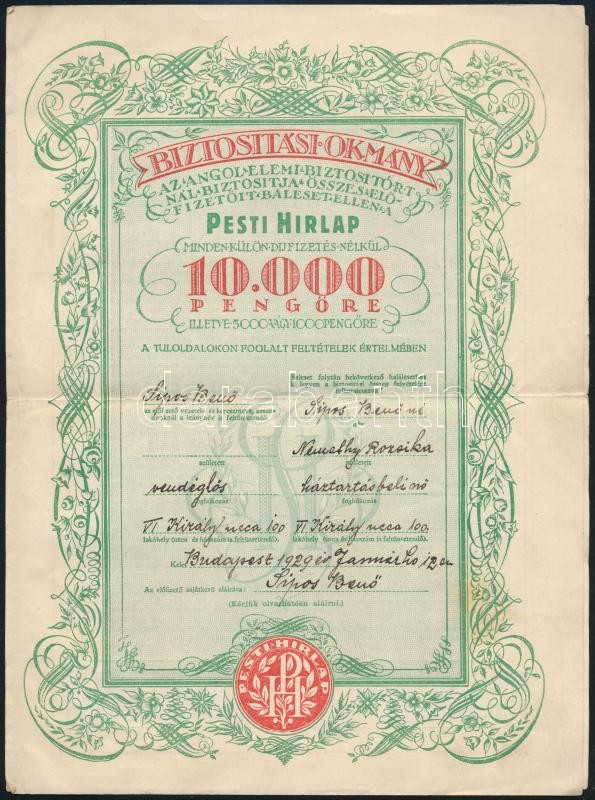 BIZTOSITÁSI·OKMÁNY
AZ·ANGOL·ELEMI·BIZTOSITÓR·T
NÁL·BIZTOSITJA·ÖSSZES·ELŐ-
FIZETŐIT·BALESET·ELLEN·A
PESTI HIRLAP
MINDEN·KÜLÖN·DIJFIZETÉS·NÉLKÜL
10.000
PENGŐRE
ILLETVE·5000·VAGY·1000·PENGŐRE
A TULOLDALOKON FOGLALT FELTÉTELEK ÉRTELMÉBEN
Baleset folytán bekövetkező halálesetben
ki legyen a biztosítási összeg felvételére
feljogosítva
Sipos Benő
Sipos Benő nő
az előfizető vezeték- és keresztneve, asszo-
nyoknál a leánynév is feltüntetendő
Némethy Rozsika
született
született
vendéglős
háztartásbeli nő
foglalkozás
foglalkozás
VI Király ucca 100
VI. Király ucca 100.
lakóhely (utca és házszám is feltüntetendő).
lakóhely (utca és házszám is feltüntetendő).
Kelet Budapest 1929 év Január hó 12 én
Az előfizető sajátkezű aláírása: Sipos Benő
(Kérjük olvashatóan aláírni.)
PESTI·HIRLAP
PH
darabanth